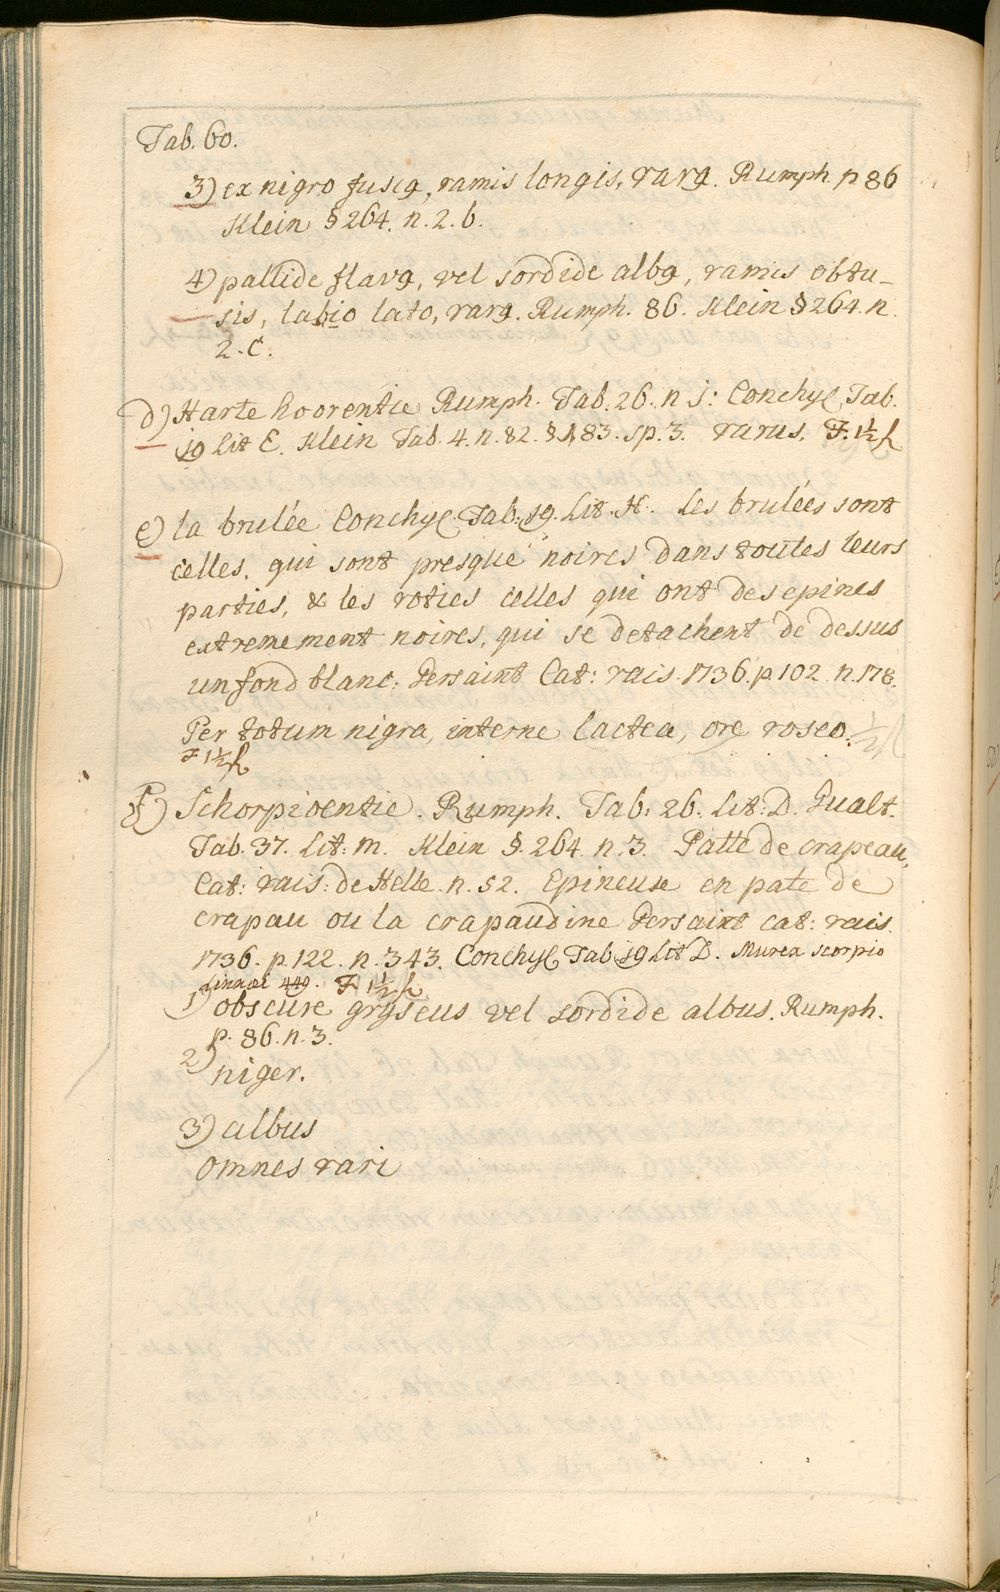 Tab. 60.
3) ex nigro fusca, ramis longis, rara. Rumph. p 86
Klein § 264. n. 2. b.
4) pallide flava, vel sordide alba, ramis obtu-
sis, labio lato, rara. Rumph. 86. Klein § 264. n.
2. C.
d) Harte hoorentie Rumph. Tab. 26. n 5: Conchyl Tab.
19 Lit E. Klein Tab. 4. n. 82. § 183. sp. 3. rarus. F. 1½ fl
e) la brulée Conchyl. Tab. 19. Lit. H. Les brulées sont
celles, qui sont presque noires dans toutes leurs
parties, & les roties celles qui ont des epines
extremement noires, qui se detachent de dessus
un fond blanc. Gersaint Cat: rais. 1736. p 102. n. 178.
Per totum nigra, interne lactea, ore roseo. ½ fl
F 1½ fl
f) Schorpioentie. Rumph. Tab. 26. Lit: D. Gualt.
Tab. 37. Lit: m. Klein §. 264. n. 3. Patte de crapeau,
Cat: rais: de Helle. n. 52. Epineuse en pate de
crapau ou la crapaudine Gersaint cat: rais.
1736. p. 122. n. 343. Conchyl Tab. 19 Lit D. Murex scorpio
Linnaei 449. F 1½ fl
1) obscure gryseus vel sordide albus. Rumph.
p. 86. n. 3.
2) niger.
3) albus
omnes rari